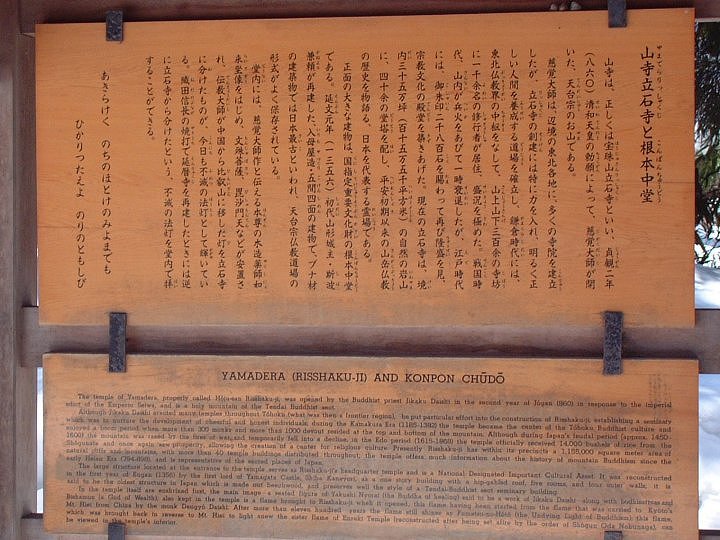 山寺立石寺と根本中堂
山寺は、正しくは宝珠山立石寺といい、貞観二年
(八六〇)清和天皇の勅願によって、慈覚大師が開
いた、天台宗のお山である。
慈覚大師は、辺境の東北各地に、多くの寺院を建立
したが、立石寺の創建には特に力を入れ、明るく正
しい人間を養成する道場を確立し、鎌倉時代には、
東北仏教界の中枢をなして、山上山下三百余の寺坊
に一千余名の修行者が居住、盛況を極めた。戦国時
代、山内が兵火をあびて一時衰退したが、江戸時代
には、御朱印二千八百石を賜わって再び隆盛を見、
宗教文化の殿堂を築きあげた。現在の立石寺は、境
内三十五万坪(百十五万五千平方米)の自然の岩山
に、四十余の堂塔を配し、平安初期以来の山岳仏教
の歴史を物語る、日本を代表する霊場である。
正面の大きな建物は、国指定重要文化財の根本中堂
である。延文元年(一三五六)初代山形城主・斯波
兼頼が再建した、入母屋造・五間四面の建物で、ブナ材
の建築物では日本最古といわれ、天台宗仏教道場の
形式がよく保存されている。
堂内には、慈覚大師作と伝える本尊の木造薬師如
来坐像をはじめ、文殊菩薩、毘沙門天などが安置さ
れ、伝教大師が中国から比叡山に移した灯を立石寺
に分けたものが、今日も不滅の法灯として輝いてい
る。織田信長の焼打で延暦寺を再建したときには逆
に立石寺から分けたという、不滅の法灯を堂内で拝
することができる。
あきらけく のちのほとけのみよまでも
ひかりつたえよ のりのともしび
YAMADERA (RISSHAKU-JI) AND KONPON CHŪDŌ
The temple of Yamadera, properly called Hōju-san Risshaku-ji, was opened by the Buddhist priest Jikaku Daishi in the second year of Jōgan (860) in response to the imperial
edict of the Emperor Seiwa, and is a holy mountain of the Tendai Buddhist sect.
Although Jikaku Daishi erected many temples throughout Tōhoku (what was then a frontier region), he put particular effort into the construction of Risshaku-ji, establishing a seminary
which was to nurture the development of cheerful and honest individuals; during the Kamakura Era (1185-1382) the temple became the center of the Tōhoku Buddhist culture and
enjoyed a boom period when more than 300 monks and more than 1000 devout resided at the top and bottom of the mountain. Although during Japan's feudal period (approx. 1450-
1600) the mountain was razed by the fires of war, and temporarily fell into a decline, in the Edo period (1615-1868) the temple officially received 14,000 bushels of rice from the
Shōgunate and once again saw prosperity, allowing the creation of a center for religious culture. Presently Risshaku-ji has within its precincts a 1,155,000 square meter area of
natural cliffs and mountains, with more than 40 temple buildings distributed throughout; the temple offers much information about the history of mountain Buddhism since the
early Heian Era (794-898), and is representative of the sacred places of Japan.
The large structure located at the entrance to the temple serves as Risshaku-ji's headquarter temple and is a National Designated Important Cultural Asset. It was reconstructed
in the first year of Engen (1356) by the first lord of Yamagata Castle, Shiba Kaneyori, as a one story building with a hip-gabled roof, five rooms, and four outer walls; it is
said to be the oldest structure in Japan which is made out beechwood, and preserves well the style of a Tendai-Buddhist sect seminary building.
In the temple itself are enshrined first, the main image - a seated figure of Yakushi Nyorai (the Buddha of healing) said to be a work of Jikaku Daishi - along with bodhisattvas and
Bishamon (a God of Wealth); also kept in the temple is a flame brought to Risshaku-ji when it opened, this flame having been started from the flame that was carried to Kyōto's
Mt. Hiei from China by the monk Dengyō Daishi. After more than eleven hundred years the flame still shines as Fumetsu-no-Hōtō (the Undying Light of Buddhism); this flame,
which was brought back in reverse to Mt. Hiei to light anew the sister flame of Enraki Temple (reconstructed after being set afire by the order of Shōgun Oda Nobunaga), can
be viewed in the temple's inferior.